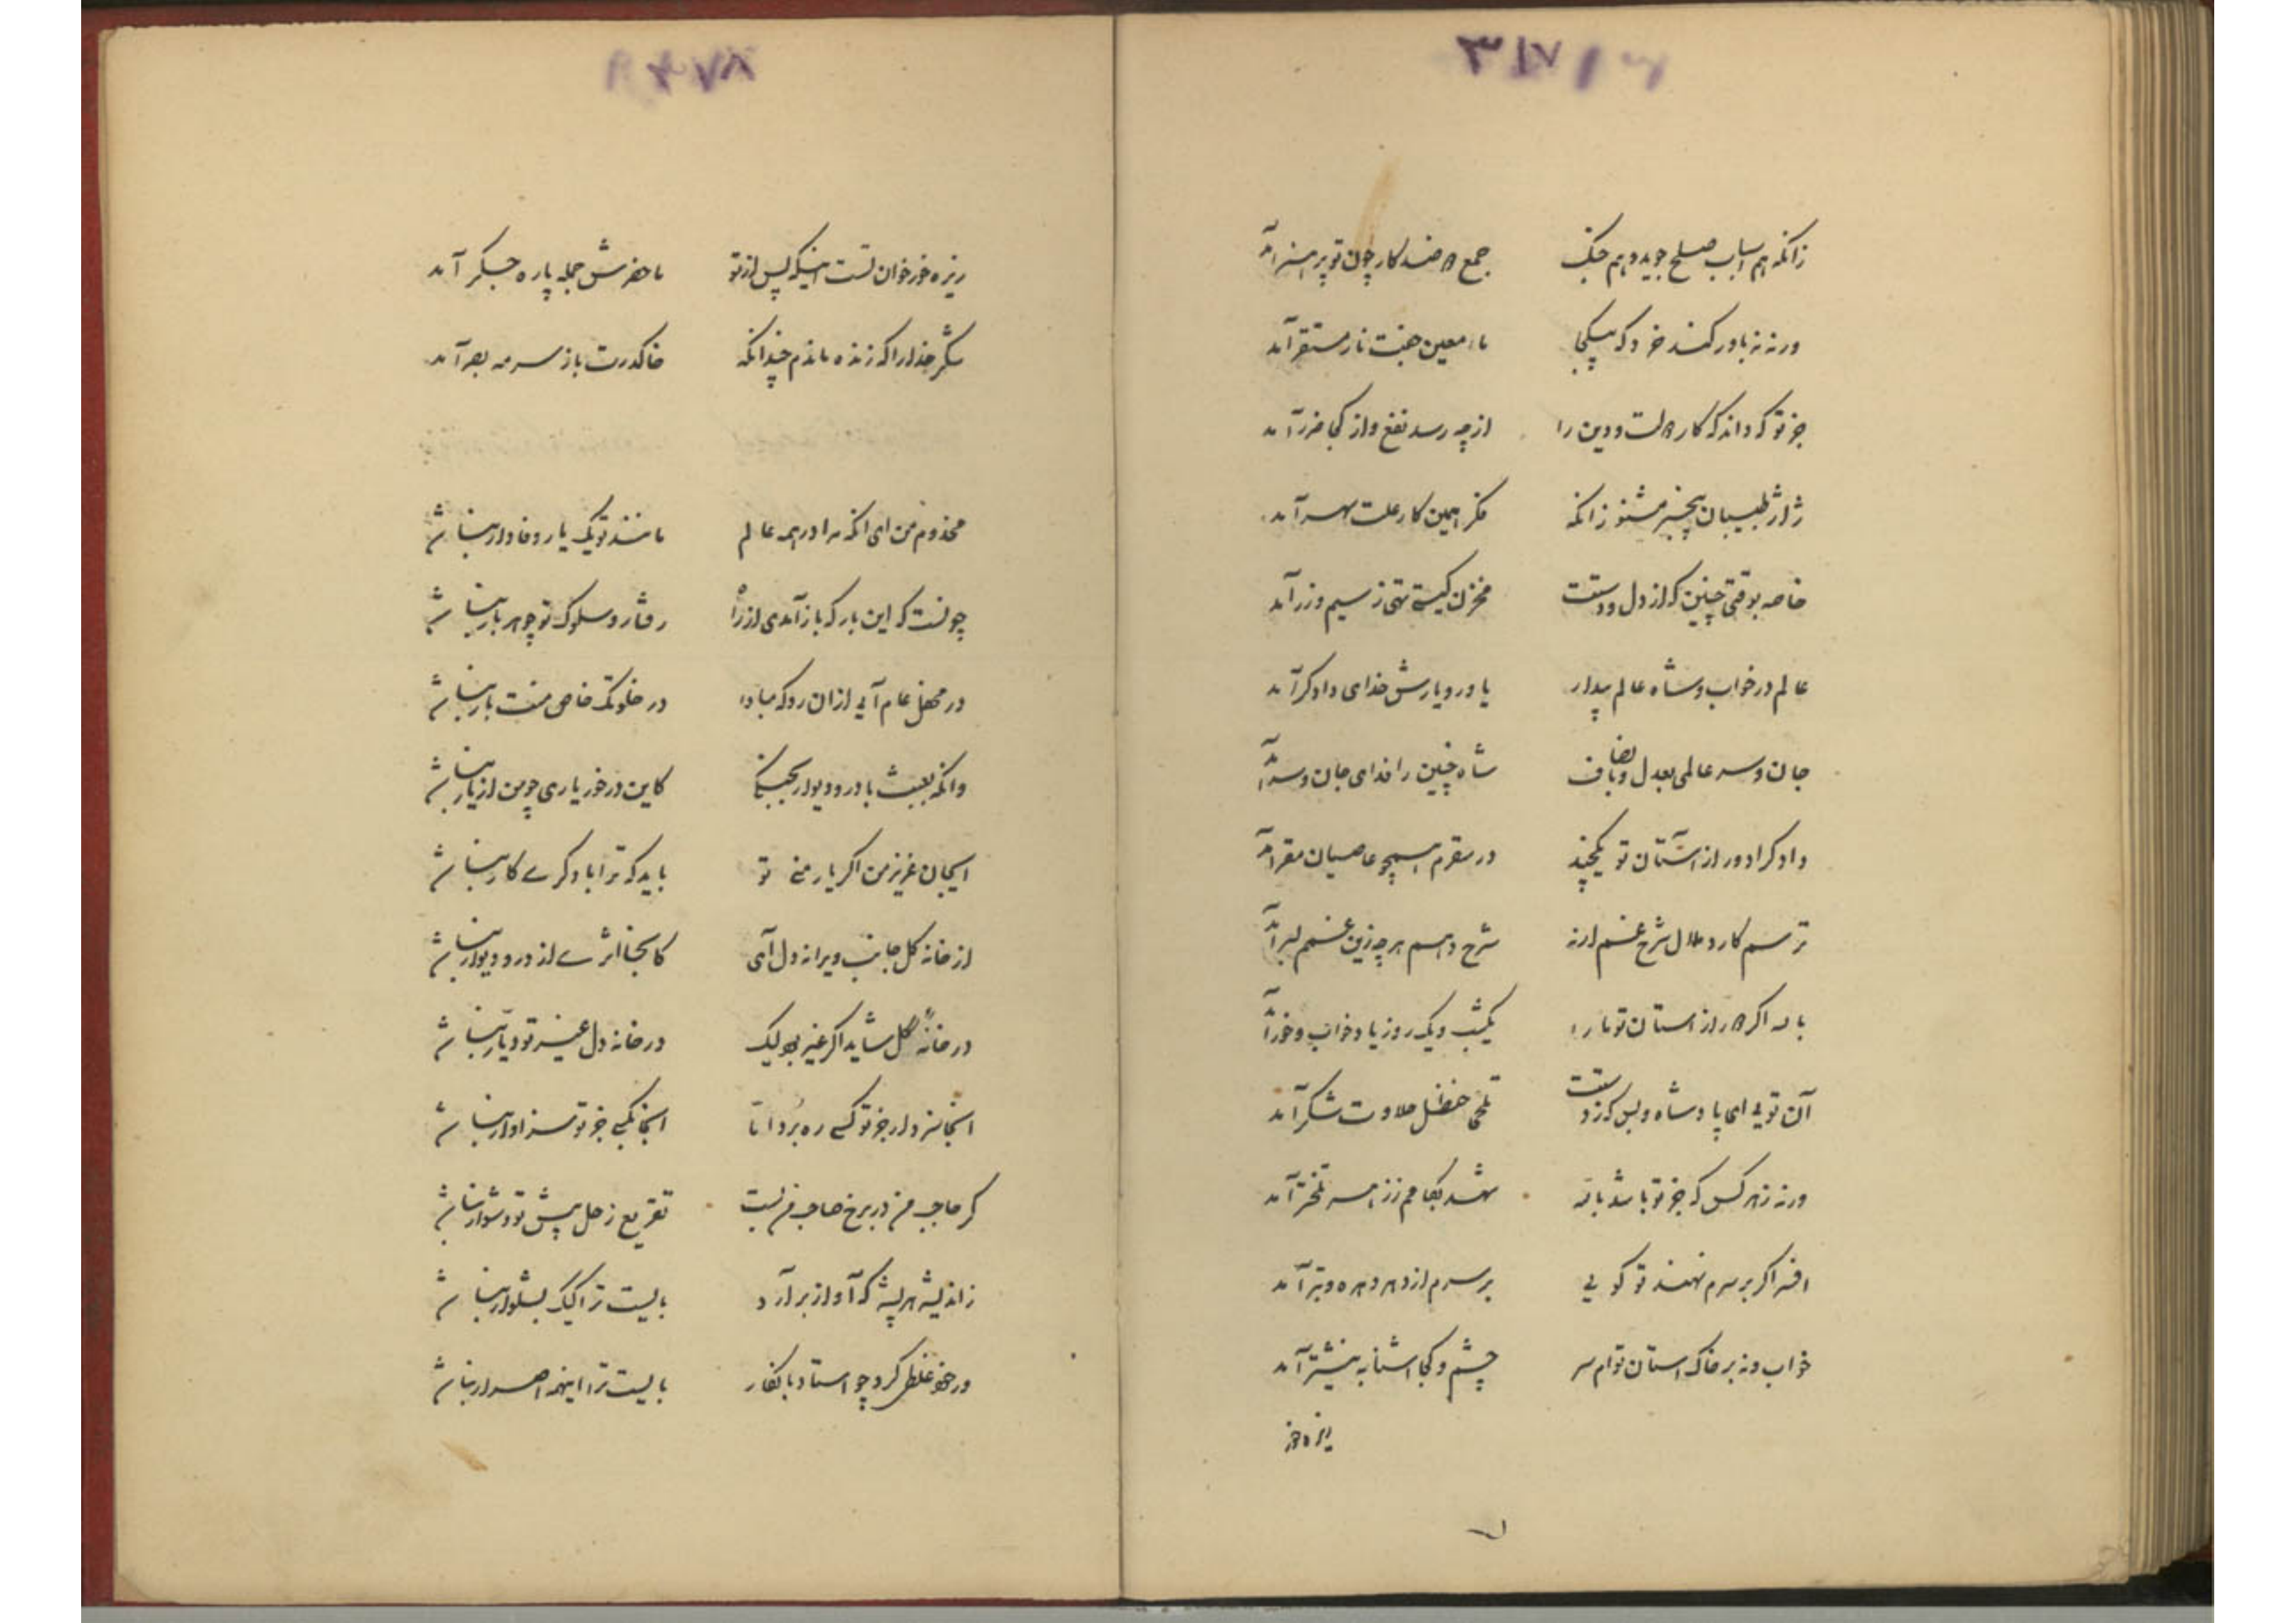 زانکه هم اسباب صلح جوید و هم جنک جمع دو ضد کار چون تو پر هنر آمد
ورنه نه باور کند خرد که بیکجا ماء معین جفت نار مستقر آمد
جز تو که داند که کار دولت و دین را از چه رسد نفع و از کجا ضرر آمد
ژاژ طبیبان بیخبر مشنو زانکه فکر همین کار علت سهر آمد
خاصه بوقتی چنین که از دل و دستت مخزن کیتی تهی ز سیم و زر آمد
عالم در خواب و شاه عالم بیدار یاور و یارش خدای دادکر آمد
جان و سر عالمی بعدل و بانصاف شاه چنین را فدای جان و سر آمد
دادکرا دور از آستان تو یکچند در سقرم همچو عاصیان مقر آمد
ترسم کارد ملال شرح غمم ارنه شرح دهم هر چه زین غمم بسر آمد
بالله اکر دور از آستان تو ما را یکشب و یک روز یاد خواب و خور آمد
آن تویی ای پادشاه و بس که ز دستت تلخی حنظل حلاوت شکر آمد
ورنه ز هر کس که جز تو باشد بالله شهد بکامم ز زهر تلختر آمد
افسر اکر بر سرم نهند تو کویی بر سرم از دهر دهره و تبر آمد
خواب و نه بر خاک آستان توام سر چشم و کجا آشنا به نیشتر آمد
ریزه خور
ریزه خور خوان تست اینکه پس از تو ماحضرش جمله پاره جکر آمد
شکر خدا را که زنده ماندم چندانکه خاک درت باز سرمه بصر آمد
مخدوم من ای آنکه مرا در همه عالم مانند تو یک یار وفادار نباشد
چونست که این بار که بازآمدی از راه رفتار و سلوک تو چو هر بار نباشد
در محفل عام آیی ازان رو که مبادا در خلوتک خاص منت بار نباشد
وانکه بعبث با در و دیوار بجنکی کاین در خور یاری چو من از یار نباشد
ایجان عزیز من اکر یار منی تو باید که ترا با دکری کار نباشد
از خانه کل جانب ویرانه دل آی کاینجا اثری از در و دیوار نباشد
در خانه کل شاید اکر غیر بود لیک در خانه دل غیر تو دیار نباشد
اینجا نبرد ار جز تو کسی ره برد اما اینجا کسی جز تو سزاوار نباشد
کر حاجب من در برخ صاحب من بست تقریع زحل پیش تو دشوار نباشد
ز اندیشه هر پشه که آواز برآرد بایست ترا کیک بشلوار نباشد
ور خود غلطی کرد چو استاد بانکار بایست ترا اینهمه اصرار نباشد